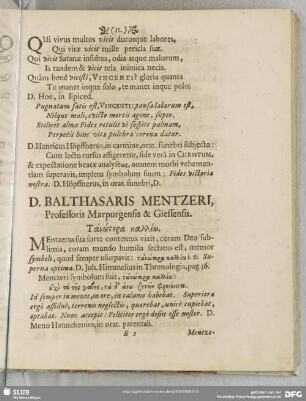 (11.)
QUi vivus multos vicit durosque labores,
Qui vitæ vicit mille pericla suæ.
Qui vicit Satanæ insultus, odia atque malorum,
Is tandem & vicit tela inimica necis.
Quàm benè vicisti, VINCENTI! gloria quanta
Te manet inque solo, te manet inque polo.
D. Hoe, in Epiced.
Pugnatum satis est, VINCENTI: pausa laborum est,
Nilque mali, evicto martis agone, super.
Scilicet alma Fides retulit vi sospite palmam,
Perpetis hinc vita pulchra corona datur.
D. Henricus Höpffnerus, in carmine, orat. funebri subjecto:
Cum lecto rursus affigeretur, fide verâ in CHRISTUM,
& expectatione beatæ analyseως, omnem morbi vehementiam
superavit, implens symbolum suum: Fides victoria
nostra. D. Höpffnerus, in orat. funebri, D.
D. BALTHASARIS MENTZERI,
Professoris Marpurgensis & Giessensis.
Τανώτερα καλλίω.
MEntzerus sua sorte contentus vixit, coram Deo sublimia,
coram mundo humilia sectatus est, memor
symboli, quod semper usurpavit: τανώτερα καλλίω: i. e. Superna
optima. D. Joh. Himmelius in Threnologia, pag. 36.
Mentzeri symbolum fuit, τανώτερα καλλίω:
Id semper in mente, in ore, in calamo habebat. Superiora
ergò assiduè, terrenis neglectis, quærebat, unicè cupiebat,
optabat. Nunc accepit: Feliciter ergò desiit esse noster. D.
Meno Hannekenius, in orat. parentali.
B 2 Mentze-
SLUB
DFG